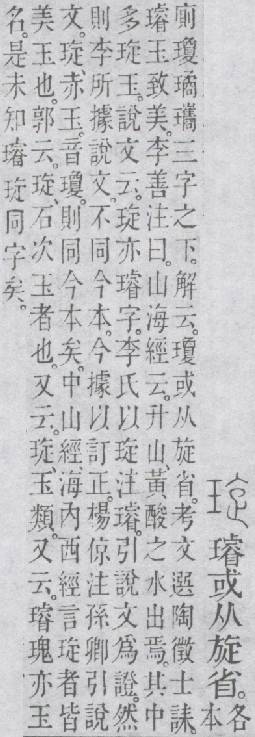 琁 璿或从旋省。各本
廁瓊璚瓗三字之下。解云。瓊或从旋省。考文選陶徵士誄。
璿玉致美。李善注曰。山海經云。升山、黃酸之水出焉。其中
多琁玉。說文云。琁亦璿字。李氏以琁注璿。引說文爲證。然
則李所據說文。不同今本。今據以訂正。楊倞注孫卿引說
文。琁、赤玉。音瓊。則同今本矣。中山經海內西經言琁者皆
美玉也。郭云。琁、石次玉者也。又云。琁、玉類。又云。璿瑰亦玉
名。是未知璿琁同字矣。